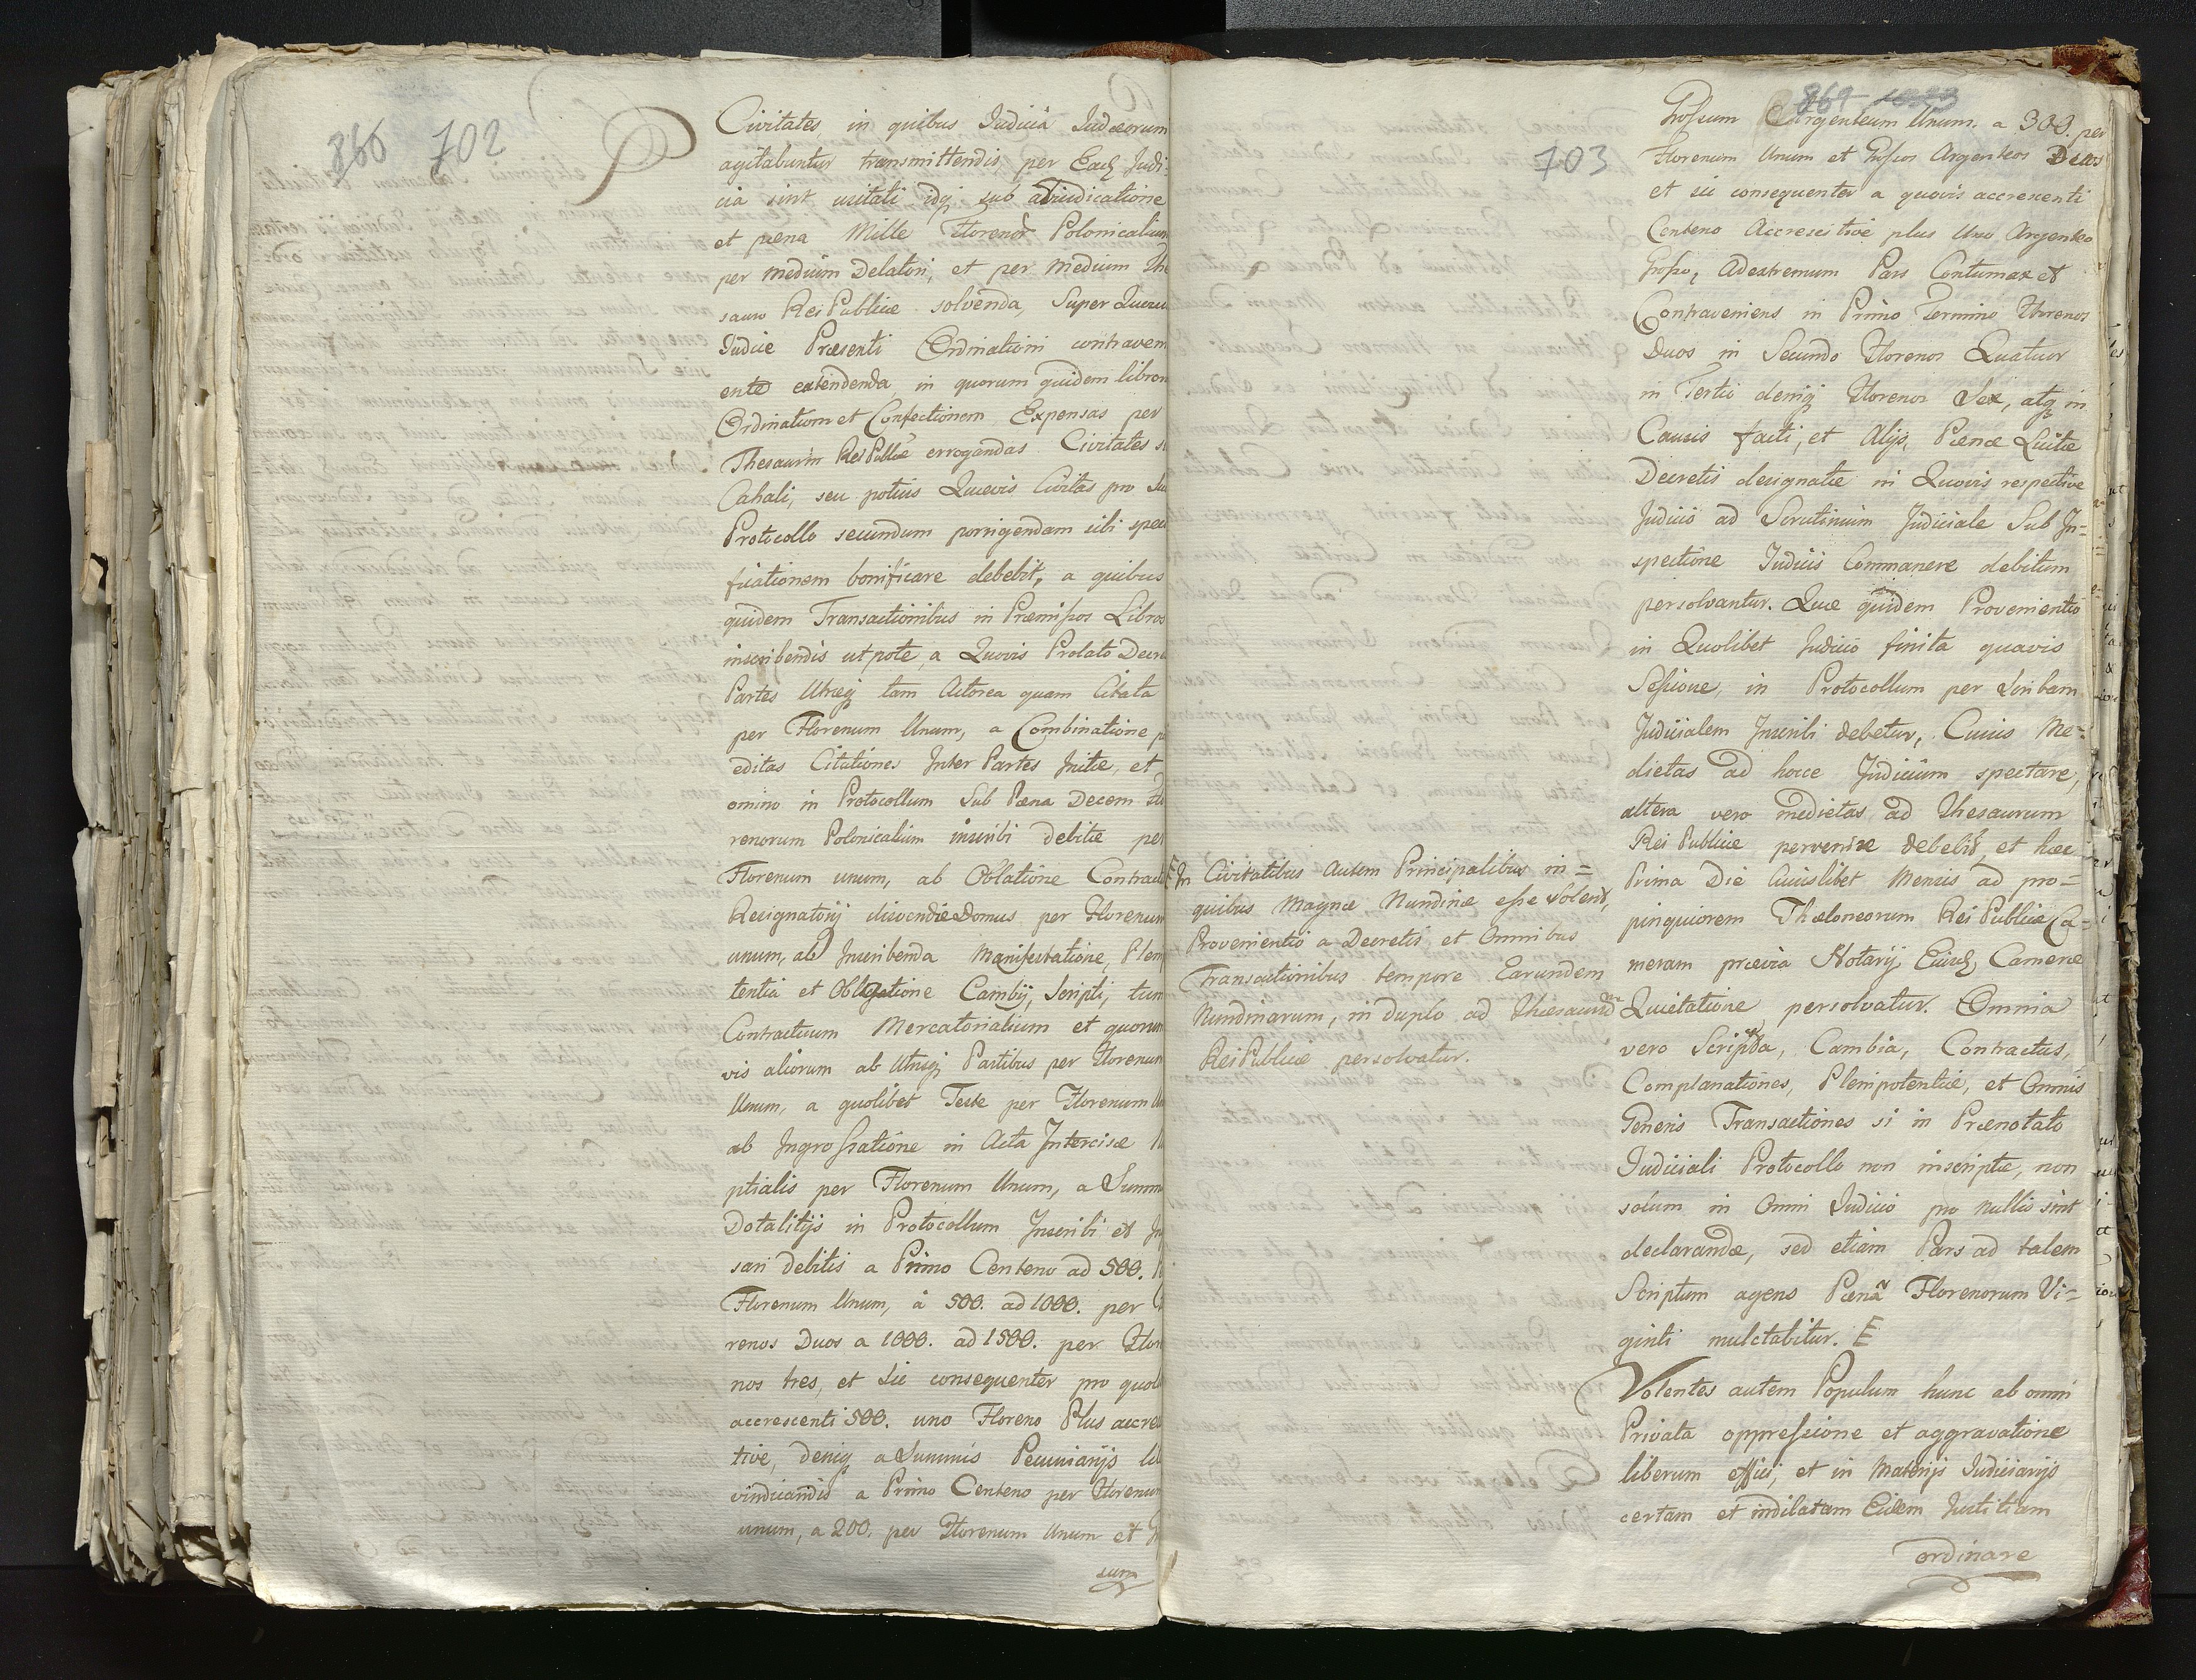 866 702
Civitates, in quibus Judicia Judæorum
agitabuntur transmittendis, per Eadē Judi-
cia sint usitati idq sub abiudicatione
et pæna Mille Florenor Polonicalium
per medium Delatori, et per medium The
sauro Rei Publicæ solvenda, Super
Judice Præsenti Ordinationi contraveni
ente extendenda, in quorum quidem libroru
Ordinationem et Confectionem Expensas per
Thesaurum Rei Publicæ errogandas Civitates
Cahali, seu potius Quævis Civitas pro
Protocollo secundum porrigendam sibi speci
ficationem bonificare debebit, a quibus
quidem Transactionibus in Præmissos Libros
inscribendis ut pote, a Quovis Prolato Decre
Partes Utræq tam Actorea quam Citata
per Florenum Unum, a Combinatione p
editas Citationes Inter Partes Initæ, et
omino in Protocollum Sub Pæna Decem Flo
renorum Polonicalium inscribi debitæ per
Florenum unum, ab Oblatione Contractu
Resignatorij Domus per Florenum
unum, ab Inscribenda Manifestatione, Plenipo
tentia et Obligatione Cambij, Scripti, tum
Contractuum Mercatorialium et quorum
vis aliorum ab Utrisq Partibus per Florenum
Unum, a quolibet Teste per Florenum Un
ab Ingrossatione in Acta Intercisæ Nu
ptialis per Florenum Unum, a Summ
Dotalitijs in Protocollum Inscribi et In
sari debitis a Primo Centeno ad 500.
Florenum Unum, à 500. ad 1000. per
renos Duos a 1000. ad 1500. per Flore
nos tres, et Sic consequenter pro quol
accrescenti 500. uno Floreno Plus accres
tive, deniq a Summis Pecuniarijs
vindicandis a Primo Centeno per Florenum
unum, a 200. per Florenum Unum et
sum
703
In Civitatibus Autem Principalibus in=
quibus Magnæ Nundinæ esse Solent,
Provenientio a Decretis et Omnibus
Transactionibus tempore Earundem
Nundinarum, in duplo ad Thesaurum
Rei Publicæ persolvatur.
869
Grossum Argenteum Unum. a 300. per
Florenum Unum et Grossos Argenteos Duos
et sic consequenter a quovis accrescenti
Centeno Accrescitivè plus Uno Argenteo
Grosso, Adextremum Pars Contumax et
Contraveniens in Primo Termino Florenos
Duos in Secundo Florenos Quatuor
in Tertio deniq Florenos Sex, atq in
Causis facti, et Alijs, Pænæ Luitæ
Decretis designatæ in Quovis respective
Judicio ad Scrutinium Judiciale Sub In=
spectione Judicis Commanere debitum
persolvantur. Quæ quidem Provenientio
in Quolibet Judicio finita quavis
Sessione, in Protocollum per Scribam
Judicialem Inscribi debetur, Cuius Me=
dietas ad hocce Judicium spectare,
altera vero medietas ad Thesaurum
Rei Publicæ pervenire debebit, et hæc
Prima Die Cuiuslibet Mensis ad pro=
pinquiorem Thæloneorum Rei Publicæ Ca=
meram prævia Notarij Eiusd Cameræ
Quietatione persolvatur. Omnia
vero Scripta, Cambia, Contractus,
Complanationes, Plenipotentiæ, et Omnis
Generis Transactiones si in Prænotato
Judiciali Protocollo non inscriptæ, non
solum in Omni Judicio pro nullis sint
declarandæ, sed etiam Pars ad talem
Scriptum agens Pæna Florenorum Vi=
ginti mulctabitur.
Volentes autem Populum hunc ab omni
Privata oppressione et aggravatione
liberum effici, et in Materijs Judiciarijs
certam et indilatam Eidem Justitiam
ordinare